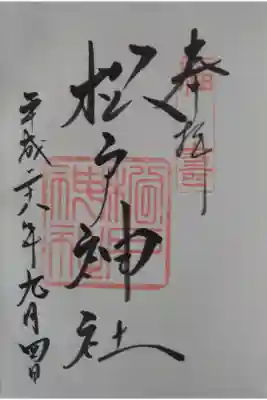 奉拝
松戸神社
平成二十八年九月四日